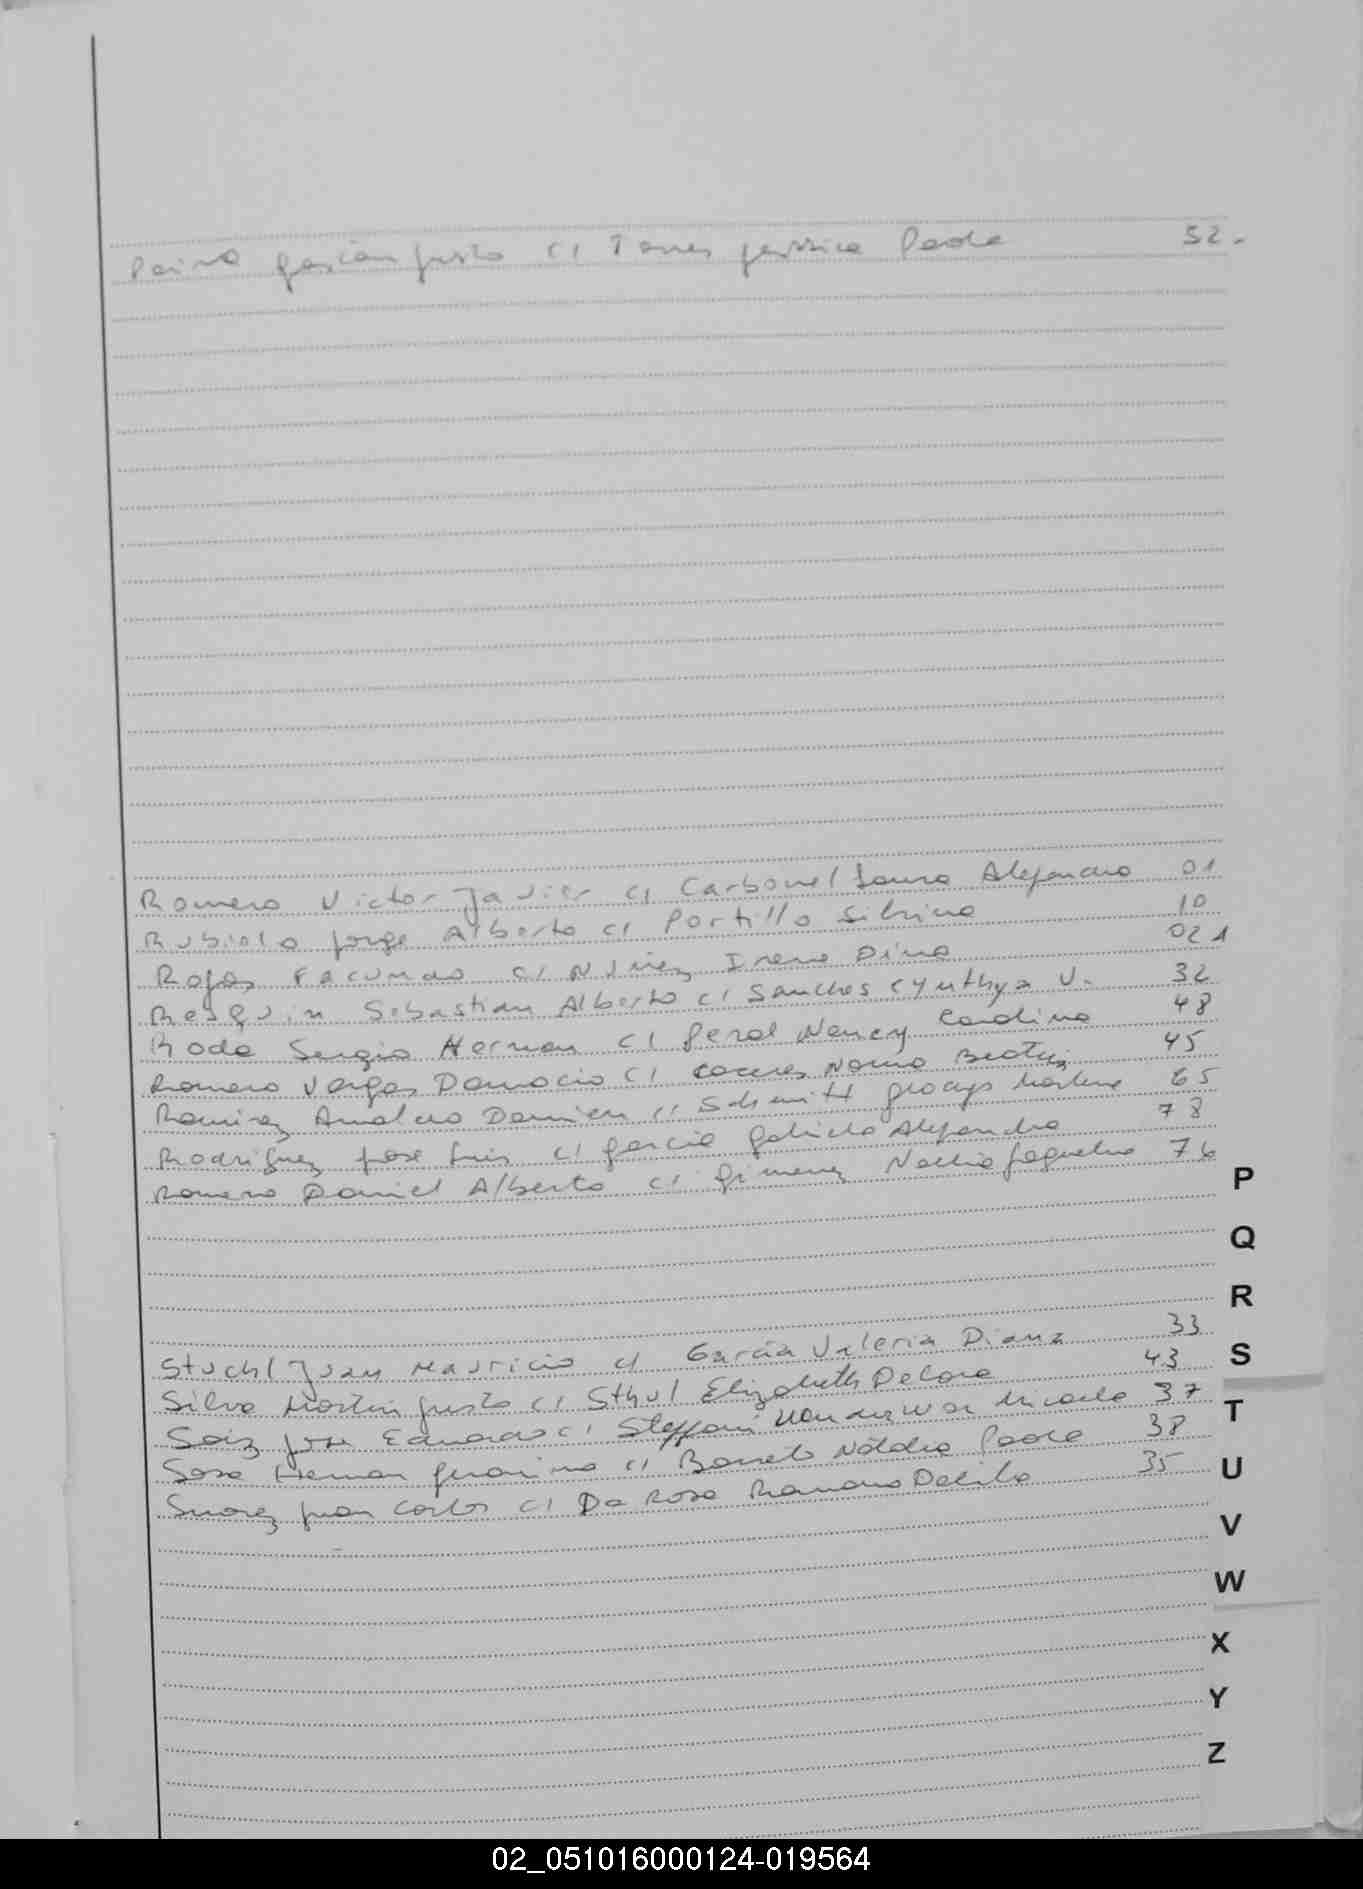 Gastón Justo c/ Torres Jessica Paola 52.
Romero Victor Javier c/ Carbonel Laura Alejandra 01
Rubiolo Jorge Alberto c/ Portillo Silvina 10
Rojas Facundo c/ Nuñez Irene Dina 021
Resquin Sebastian Alberto c/ Sanches Cynthya V. 32
Roda Sergio Hernan c/ Peral Nancy Carolina 48
Romero Vargas c/ Caceres Norma Beatriz 45
Ramirez Arnaldo Damian c/ Schmitt Gladys Marlene 65
Rodriguez Jose Luis c/ Garcia Gabriela Alejandra 78
Romero Daniel Alberto c/ Gimenez 76
P
Q
R
Stuchl Juan Mauricio c/ Garcia Valeria Diana 33
S
Silva Martin Justo c/ Sthul Elizabeth 43
T
Saiz Jose Eduardo c/ Steffani Micaela 37
Sosa Hernan c/ Barreto Natalia Paola 38
U
Suarez Juan Carlos c/ Da Rosa Ramona Delila 35
V
W
X
Y
Z
02_051016000124-019564